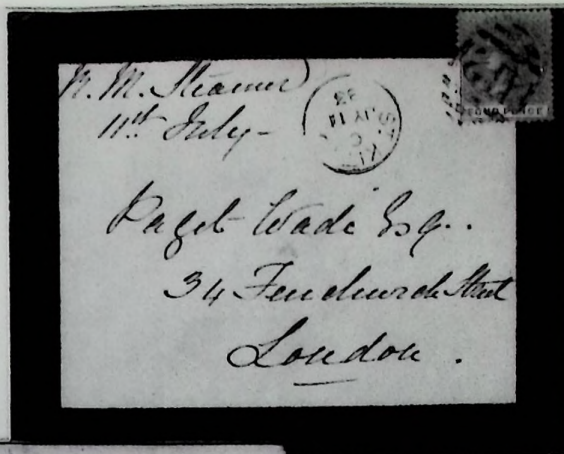 R. M. Steamer
11th July -
ST. KI
C
JY 11
83
FOUR PENCE
A12
Paget Wade Esq..
34 Fenchurch Street
London.